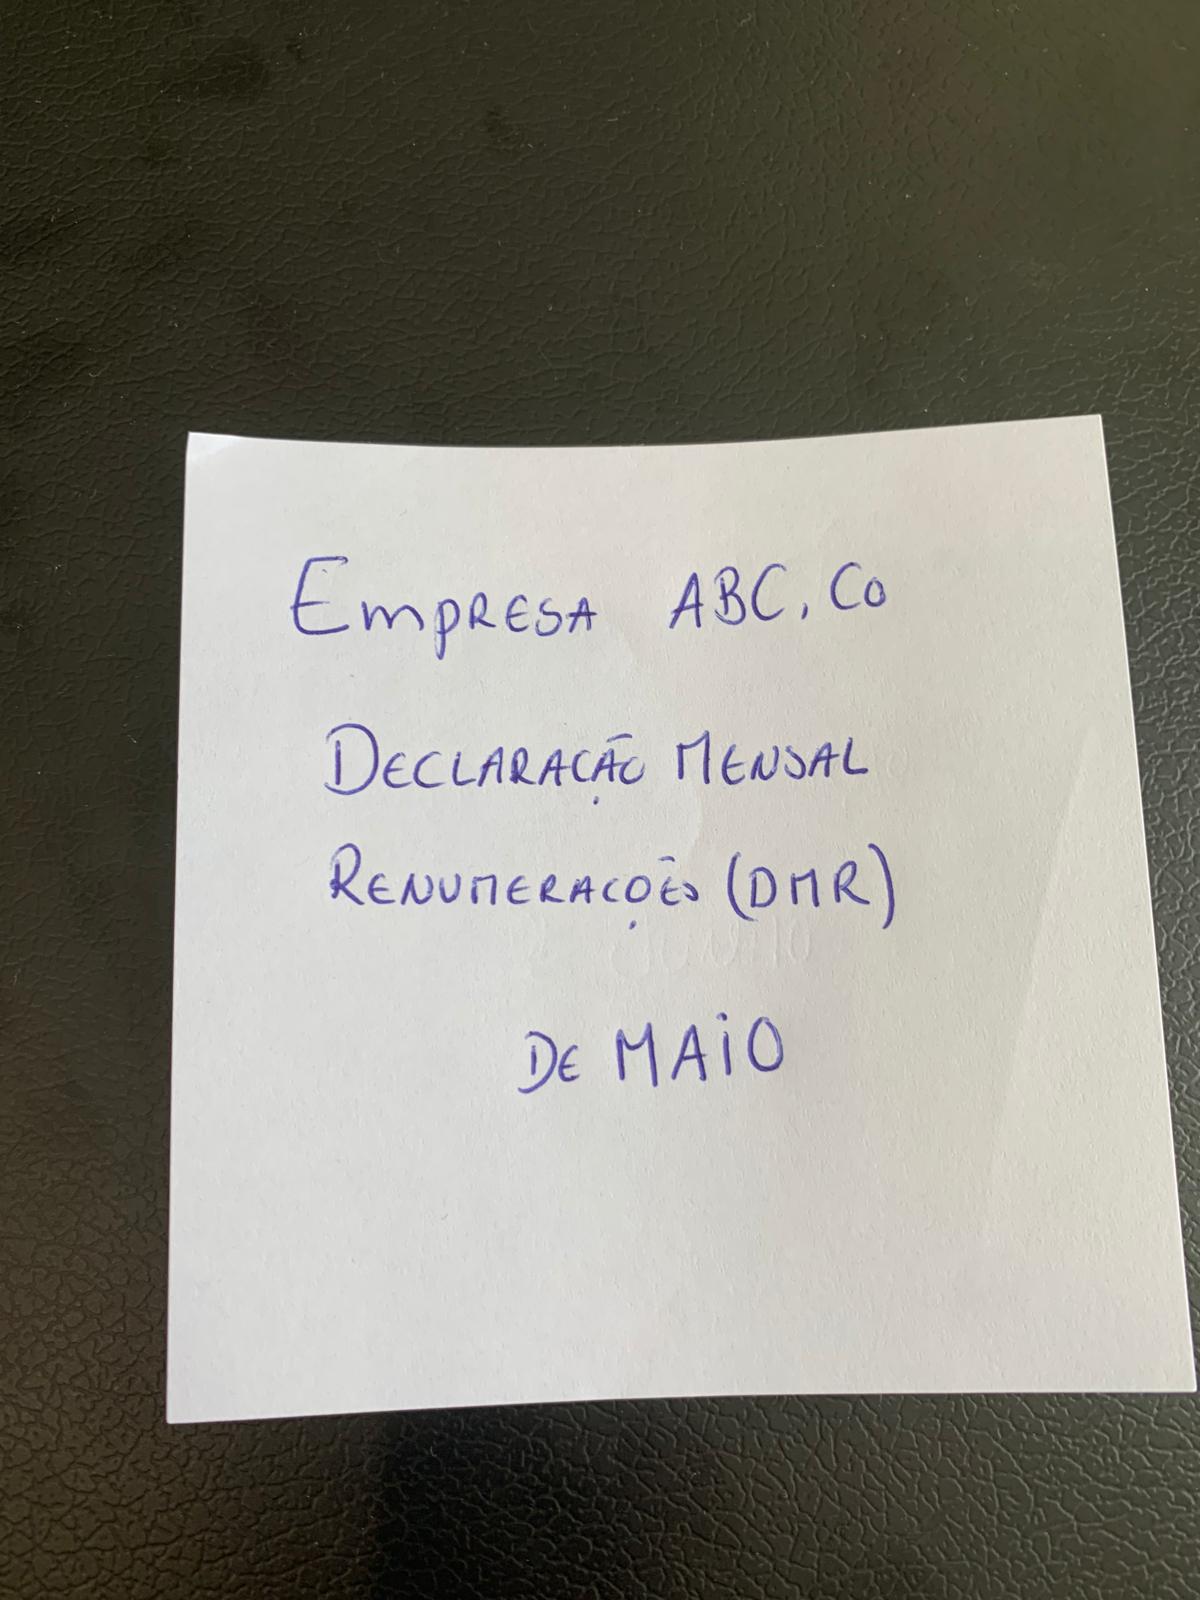 Empresa ABC, Co
Declaração Mensal
Renumerações (DMR)
de Maio